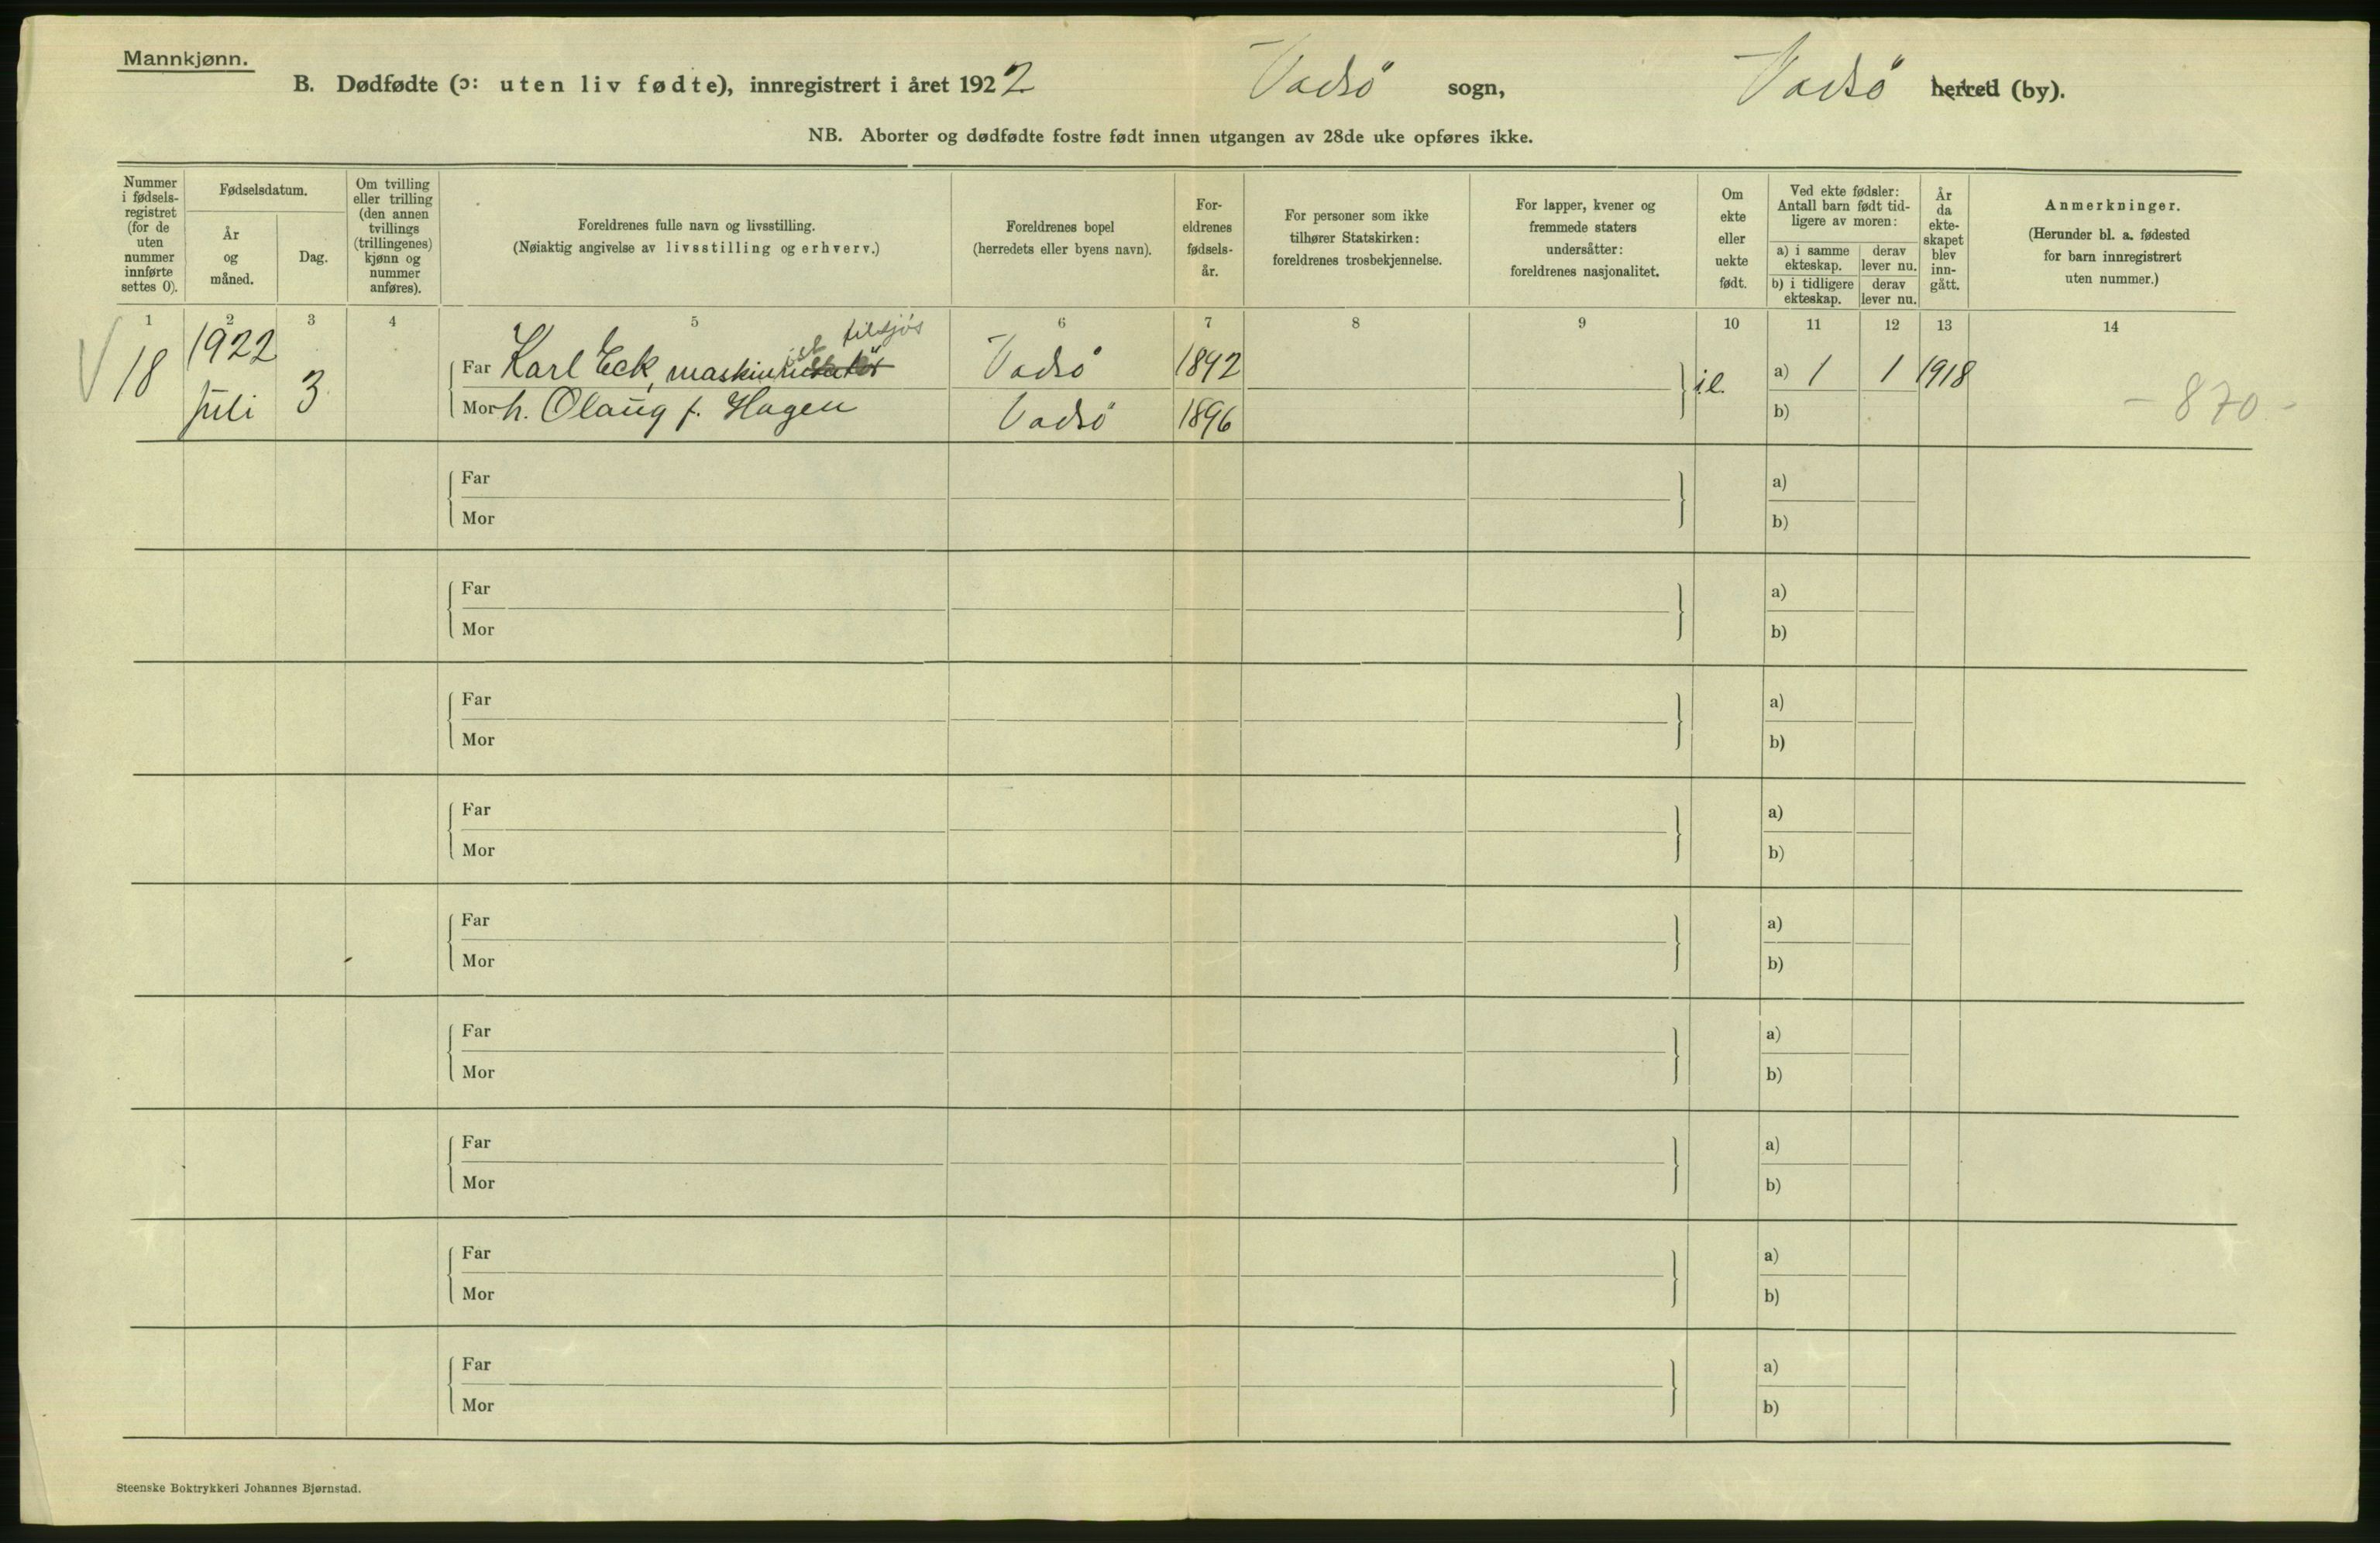 Mannkjønn.
B. Dødfødte (ɔ: uten liv fødte), innregistrert i året 1922 Vadsö sogn, Vadsö herred (by).
NB. Aborter og dødfødte fostre født innen utgangen av 28de uke opføres ikke.
Nummer
i fødsels-
registret
(for de
uten
nummer
innførte
settes 0).
Fødselsdatum.
År
og
måned.
Dag.
Om tvilling
eller trilling
(den annen
tvillings
(trillingenes)
kjønn og
nummer
anføres).
Foreldrenes fulle navn og livsstilling.
(Nøiaktig angivelse av livsstilling og erhverv.)
Foreldrenes bopel
(herredets eller byens navn).
For-
eldrenes
fødsels-
år.
For personer som ikke
tilhører Statskirken:
foreldrenes trosbekjennelse.
For lapper, kvener og
fremmede staters
undersåtter:
foreldrenes nasjonalitet.
Om
ekte
eller
uekte
født.
Ved ekte fødsler:
Antall barn født tid-
ligere av moren:
a) i samme
ekteskap.
derav
lever nu.
b) i tidligere
ekteskap.
derav
lever nu.
År
da
ekte-
skapet
blev
inn-
gått.
Anmerkninger.
(Herunder bl. a. fødested
for barn innregistrert
uten nummer.)
1 2 3 4 5 6 7 8 9 10 11 12 13 14
ist tilsjös
18 1922 Far Karl Eck, maskin Vadsö 1892 a) 1 1 1918
juli 3 Mor h. Olaug f. Hagen Vadsö 1896 b) - 870 -
Far a)
Mor b)
Far a)
Mor b)
Far a)
Mor b)
Far a)
Mor b)
Far a)
Mor b)
Far a)
Mor b)
Far a)
Mor b)
Far a)
Mor b)
Far a)
Mor b)
Steenske Boktrykkeri Johannes Bjørnstad.